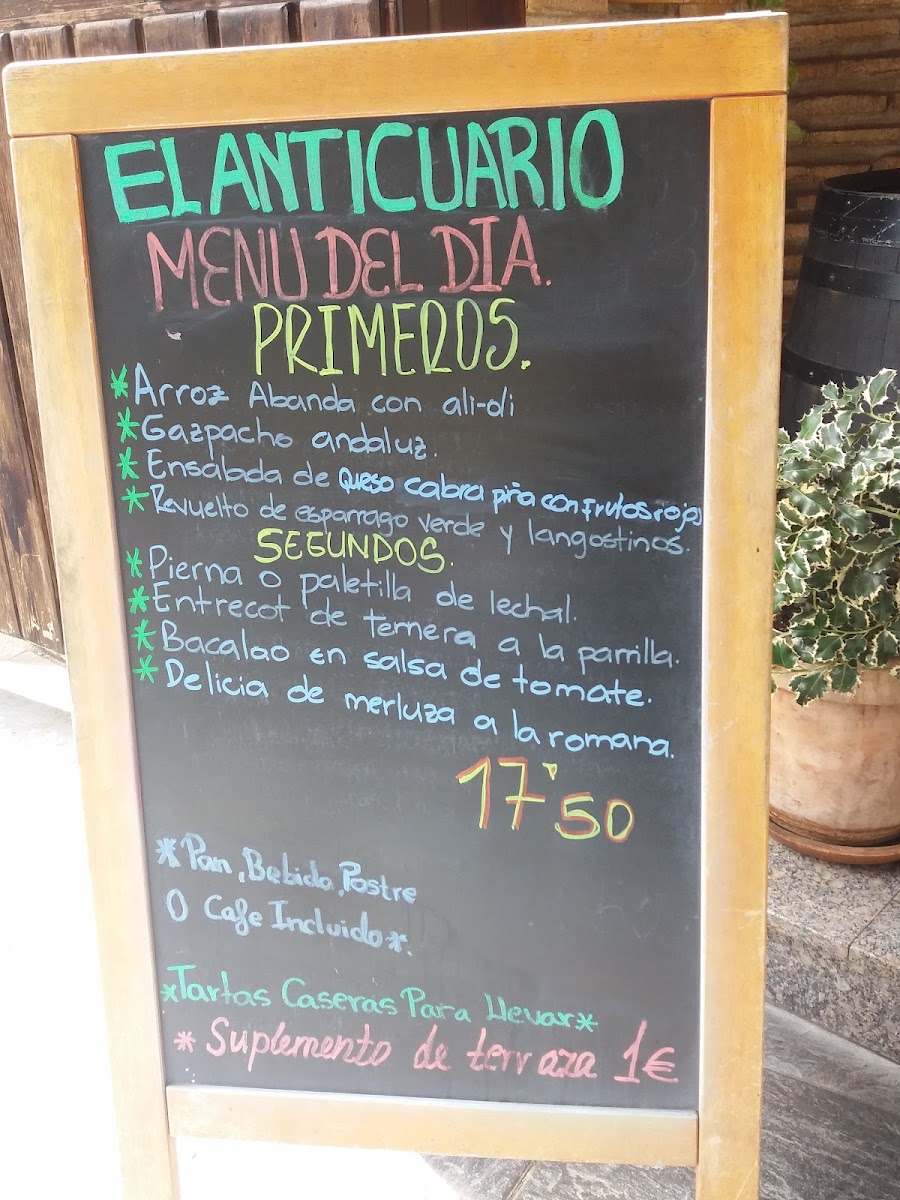 EL ANTICUARIO
MENU DEL DIA.
PRIMEROS.
*Arroz Abanda con ali-oli
*Gazpacho andaluz.
*Ensalada de queso cabra piña con Frutos rojos
*Revuelto de esparrago verde y langostinos.
SEGUNDOS.
*Pierna o paletilla de lechal.
*Entrecot de ternera a la parrilla.
*Bacalao en salsa de tomate.
*Delicia de merluza a la romana.
17'50
*Pan, Bebida, Postre
O Cafe Incluido*.
*Tartas Caseras Para Llevar*
*Suplemento de terraza 1€